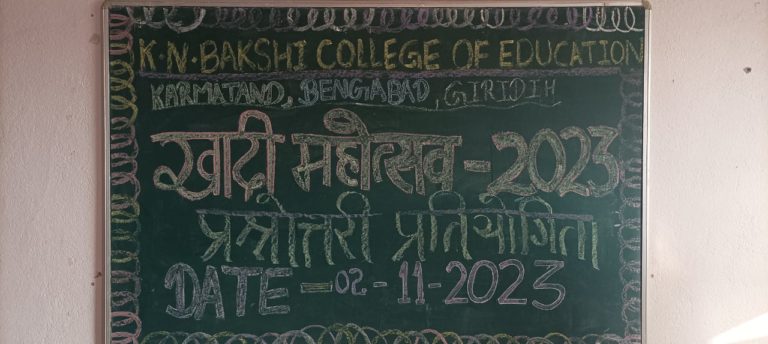 K.N.BAKSHI COLLEGE OF EDUCATION
KARMATAND, BENGABAD, GIRIDIH
खादी महोत्सव - 2023
प्रश्नोत्तरी प्रतियोगिता
DATE - 02 - 11 - 2023